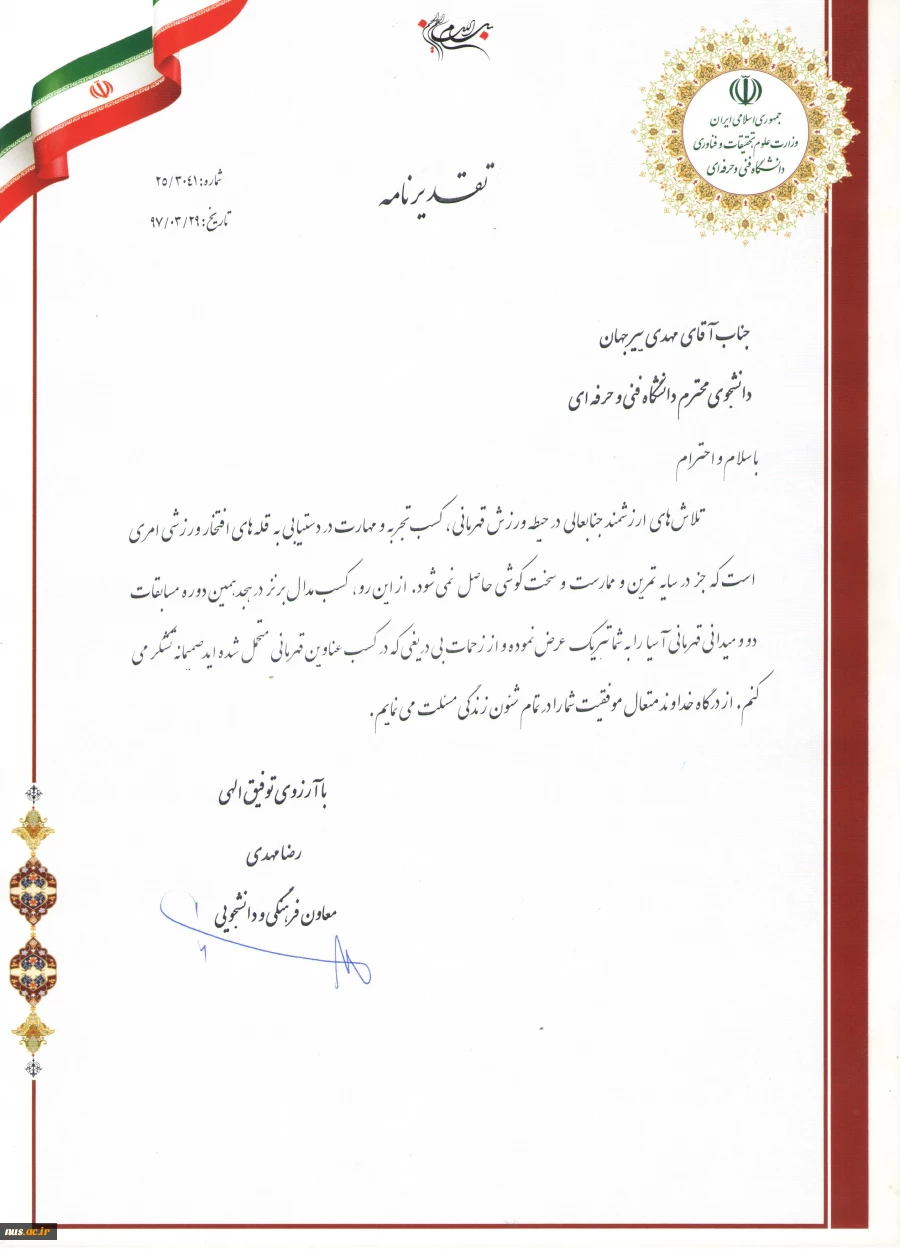 بسم الله الرحمن الرحیم
جمهوری اسلامی ایران
وزارت علوم تحقیقات و فناوری
دانشگاه فنی و حرفه ای
تقدیرنامه
شماره: ۲۵/۳۰۴۱
تاریخ: ۹۷/۰۳/۲۹
جناب آقای مهدی پیرجهان
دانشجوی محترم دانشگاه فنی و حرفه ای
با سلام و احترام
تلاش های ارزشمند جنابعالی در حیطه ورزش قهرمانی، کسب تجربه و مهارت در دستیابی به قله های افتخار ورزشی امری
است که جز در سایه تمرین و ممارست و سخت کوشی حاصل نمی شود. از این رو، کسب مدال برنز در هجدهمین دوره مسابقات
دو و میدانی قهرمانی آسیا را به شما تبریک عرض نموده و از زحمات بی دریغی که در کسب عناوین قهرمانی متحمل شده اید صمیمانه تشکر می
کنم. از درگاه خداوند متعال موفقیت شما را در تمام شئون زندگی مسئلت می نمایم.
با آرزوی توفیق الهی
رضا مهدی
معاون فرهنگی و دانشجویی
nus.ac.ir